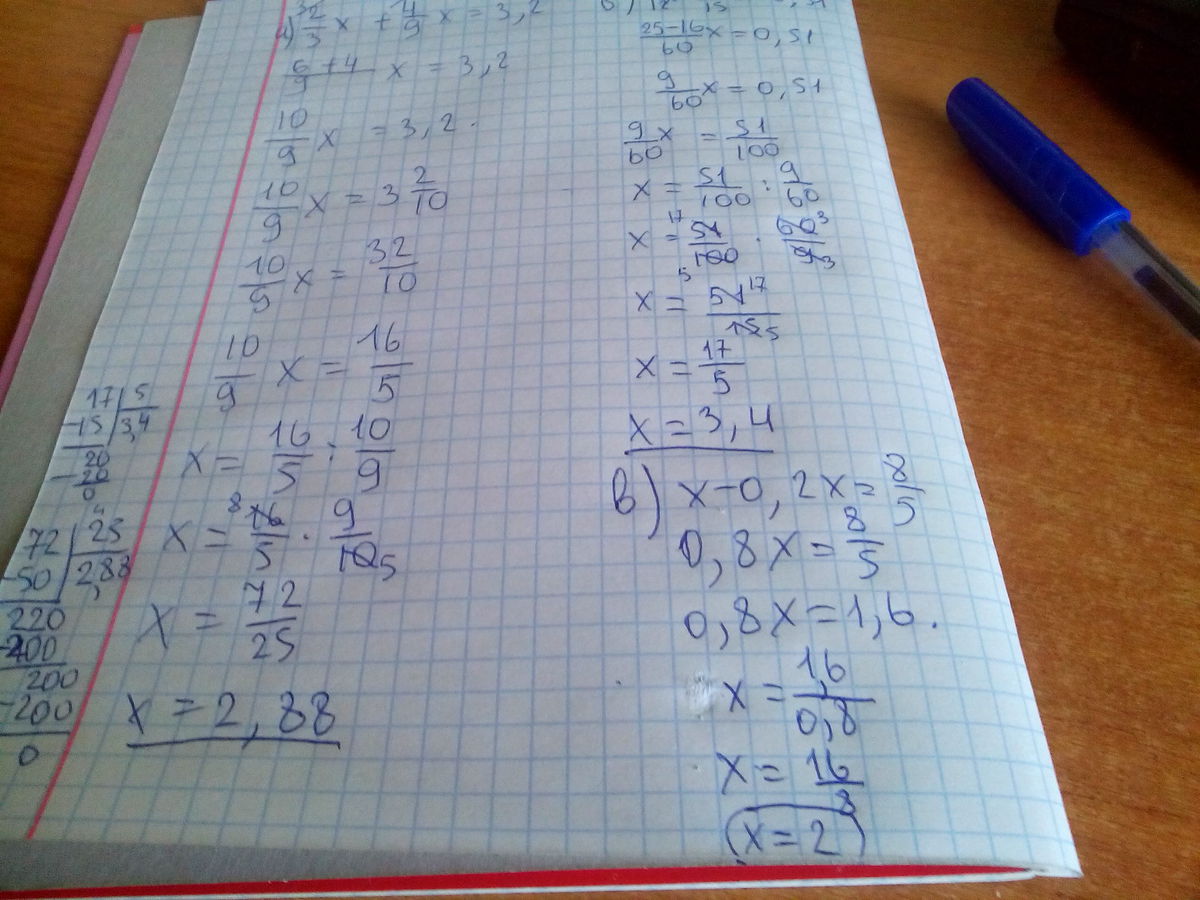 а) 2/3 x + 4/9 x = 3,2
6+4/9 x = 3,2
10/9 x = 3,2.
10/9 x = 3 2/10
10/9 x = 32/10
10/9 x = 16/5
x = 16/5 : 10/9
x = 8 16/5 · 9/10 5
x = 72/25
x = 2,88
17 | 5
-15 | 3,4
20
-20
0
72 | 25
-50 | 2,88
220
-200
200
-200
0
25-16/60 x = 0,51
9/60 x = 0,51
9/60 x = 51/100
x = 51/100 : 9/60
x = 17 51/100 5 · 60 3/9 3
x = 51 17/15 5
x = 17/5
x = 3,4
в) x-0,2x = 8/5
0,8x = 8/5
0,8x = 1,6.
x = 1,6/0,8
x = 16/8
x = 2